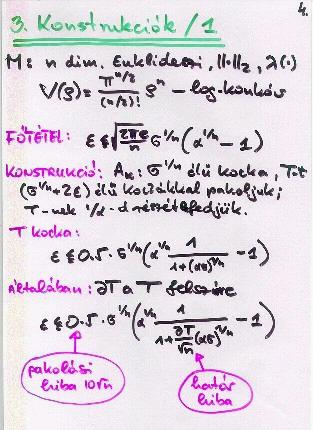 4.
3. Konstrukciók / 1
M: n dim. Euklideszi, ||·||₂, λ(·)
V(ρ) = π^{n/2}/(n/2)! ρⁿ – log-konkáv
FŐTÉTEL: ε ≤ √(2πe/n) σ^{1/n} (α^{1/n} – 1)
KONSTRUKCIÓ: Aₖ: σ^{1/n} élű kocka, T-t
(σ^{1/n}+2ε) élű kockákkal pakoljuk;
T-nek 1/α-d részét lefedjük.
T kocka:
ε ≤ 0.5 · σ^{1/n} (α^{1/n} 1/(1+(ασ)^{1/n}) – 1)
általában: ∂T a T felszíne
ε ≤ 0.5 · σ^{1/n} (α^{1/n} 1/(1+ ∂T/√n (ασ)^{1/n}) – 1)
pakolási
hiba 10√n
határ
hiba